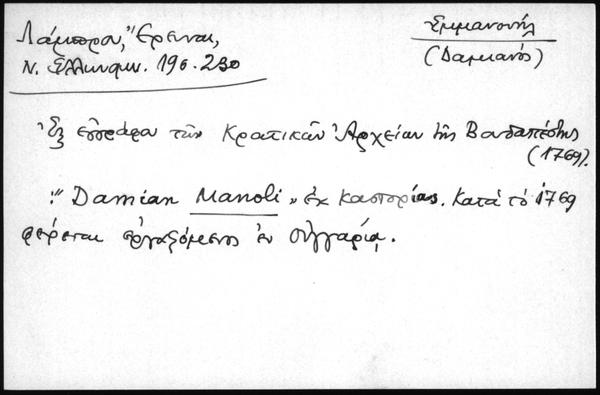 Λάμπρου, Ἔρευναι,
Ν. Ἑλληνομν. 19ς. 230
Ἐμμανουήλ
(Δαμιανός)
Ἐξ ἐγγράφου τῶν Κρατικῶν Ἀρχείων τῆς Βουδαπέστης
(1769).
"Damian Manoli" ἐκ Καστορίας. Κατὰ τὸ 1769
φέρεται ἐργαζόμενος ἐν Οὑγγαρίᾳ.